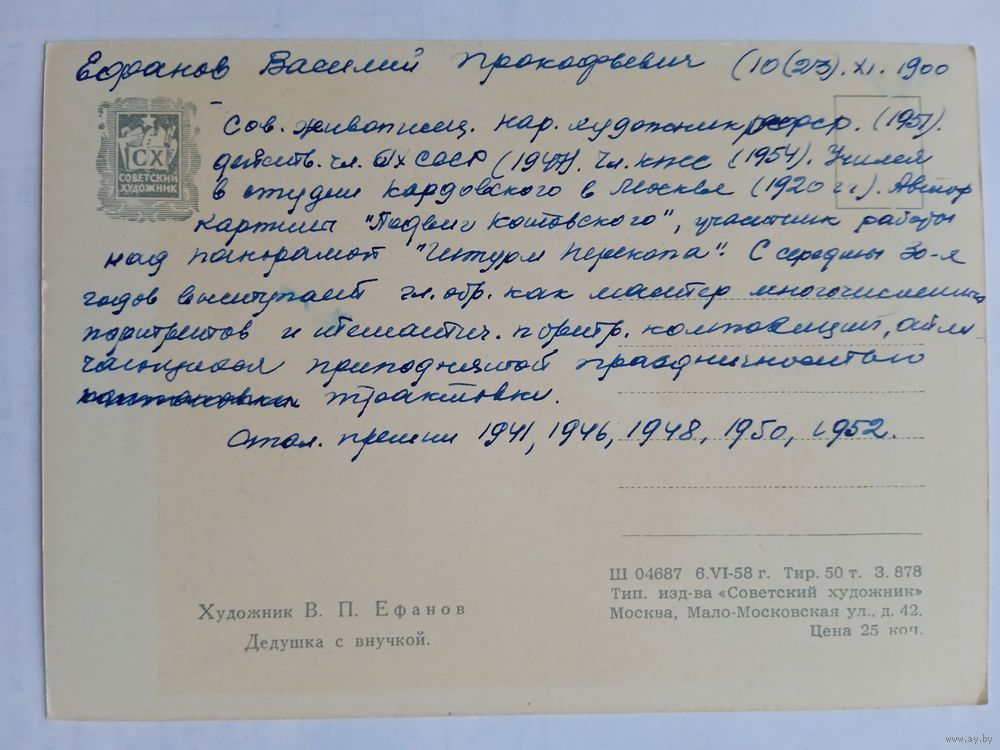 Ефанов Василий Прокофьевич (10(23).XI.1900
Сов. живописец. Нар. художник РСФСР. (1951).
действ. чл. АХ СССР (1947). Чл. КПСС (1954). Учился
в студии Кардовского в Москве (1920 гг). Автор
картины "Подвиг Котовского", участник работы
над панорамой "Штурм Перекопа". С середины 30-х
годов выступает гл. обр. как мастер многочисленных
портретов и тематич. портр. композиций, отли
чающихся приподнятой праздничностью
трактовки.
Стал. премии 1941, 1946, 1948, 1950, 1952.
СХ
СОВЕТСКИЙ
ХУДОЖНИК
Художник В. П. Ефанов
Дедушка с внучкой.
Ш 04687 6.VI-58 г. Тир. 50 т. З. 878
Тип. изд-ва «Советский художник»
Москва, Мало-Московская ул., д. 42.
Цена 25 коп.
www.ay.by